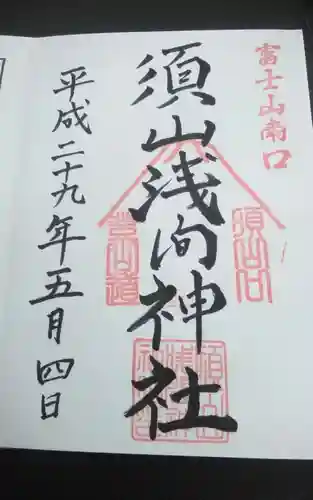 富士山南口
須山浅间神社
平成二十九年五月四日
須山口
登山道